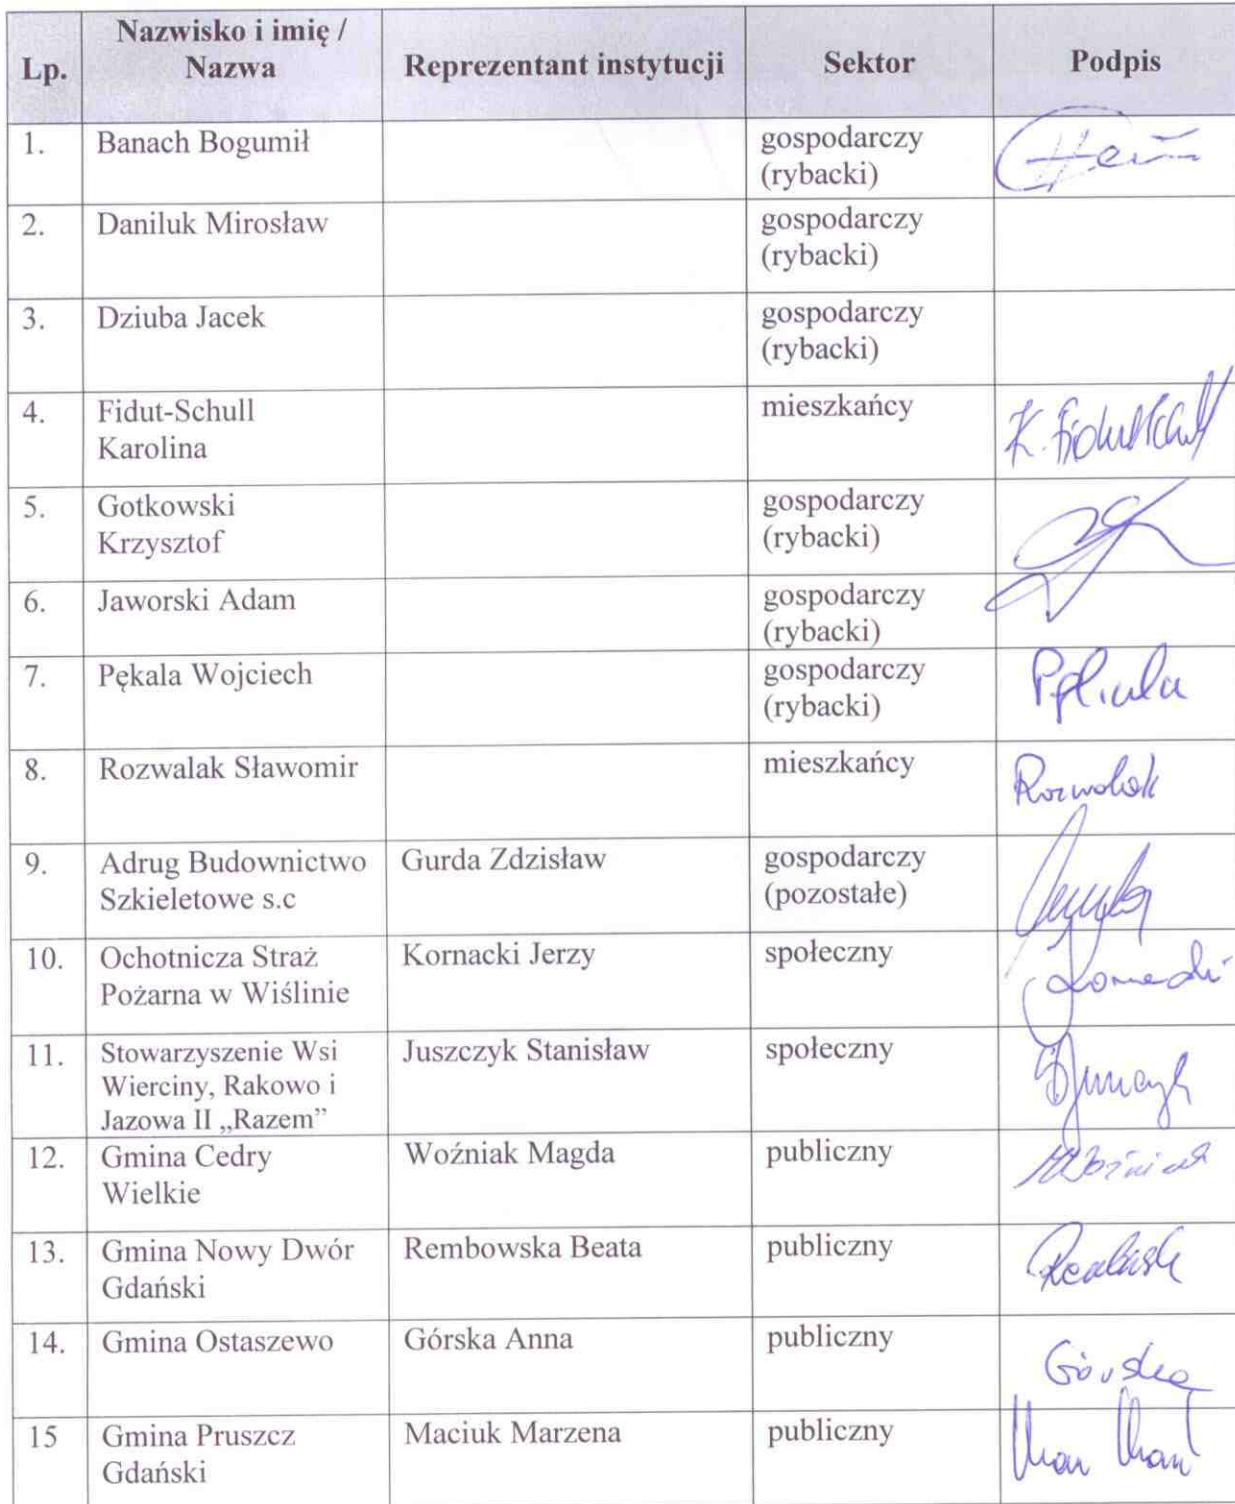 Lp. Nazwisko i imię / Nazwa Reprezentant instytucji Sektor Podpis
1. Banach Bogumił gospodarczy (rybacki)
2. Daniluk Mirosław gospodarczy (rybacki)
3. Dziuba Jacek gospodarczy (rybacki)
4. Fidut-Schull Karolina mieszkańcy
5. Gotkowski Krzysztof gospodarczy (rybacki)
6. Jaworski Adam gospodarczy (rybacki)
7. Pękala Wojciech gospodarczy (rybacki)
8. Rozwalak Sławomir mieszkańcy Rozwalak
9. Adrug Budownictwo Szkieletowe s.c Gurda Zdzisław gospodarczy (pozostałe)
10. Ochotnicza Straż Pożarna w Wiślinie Kornacki Jerzy społeczny
11. Stowarzyszenie Wsi Wierciny, Rakowo i Jazowa II „Razem” Juszczyk Stanisław społeczny
12. Gmina Cedry Wielkie Woźniak Magda publiczny
13. Gmina Nowy Dwór Gdański Rembowska Beata publiczny
14. Gmina Ostaszewo Górska Anna publiczny Górska
15 Gmina Pruszcz Gdański Maciuk Marzena publiczny